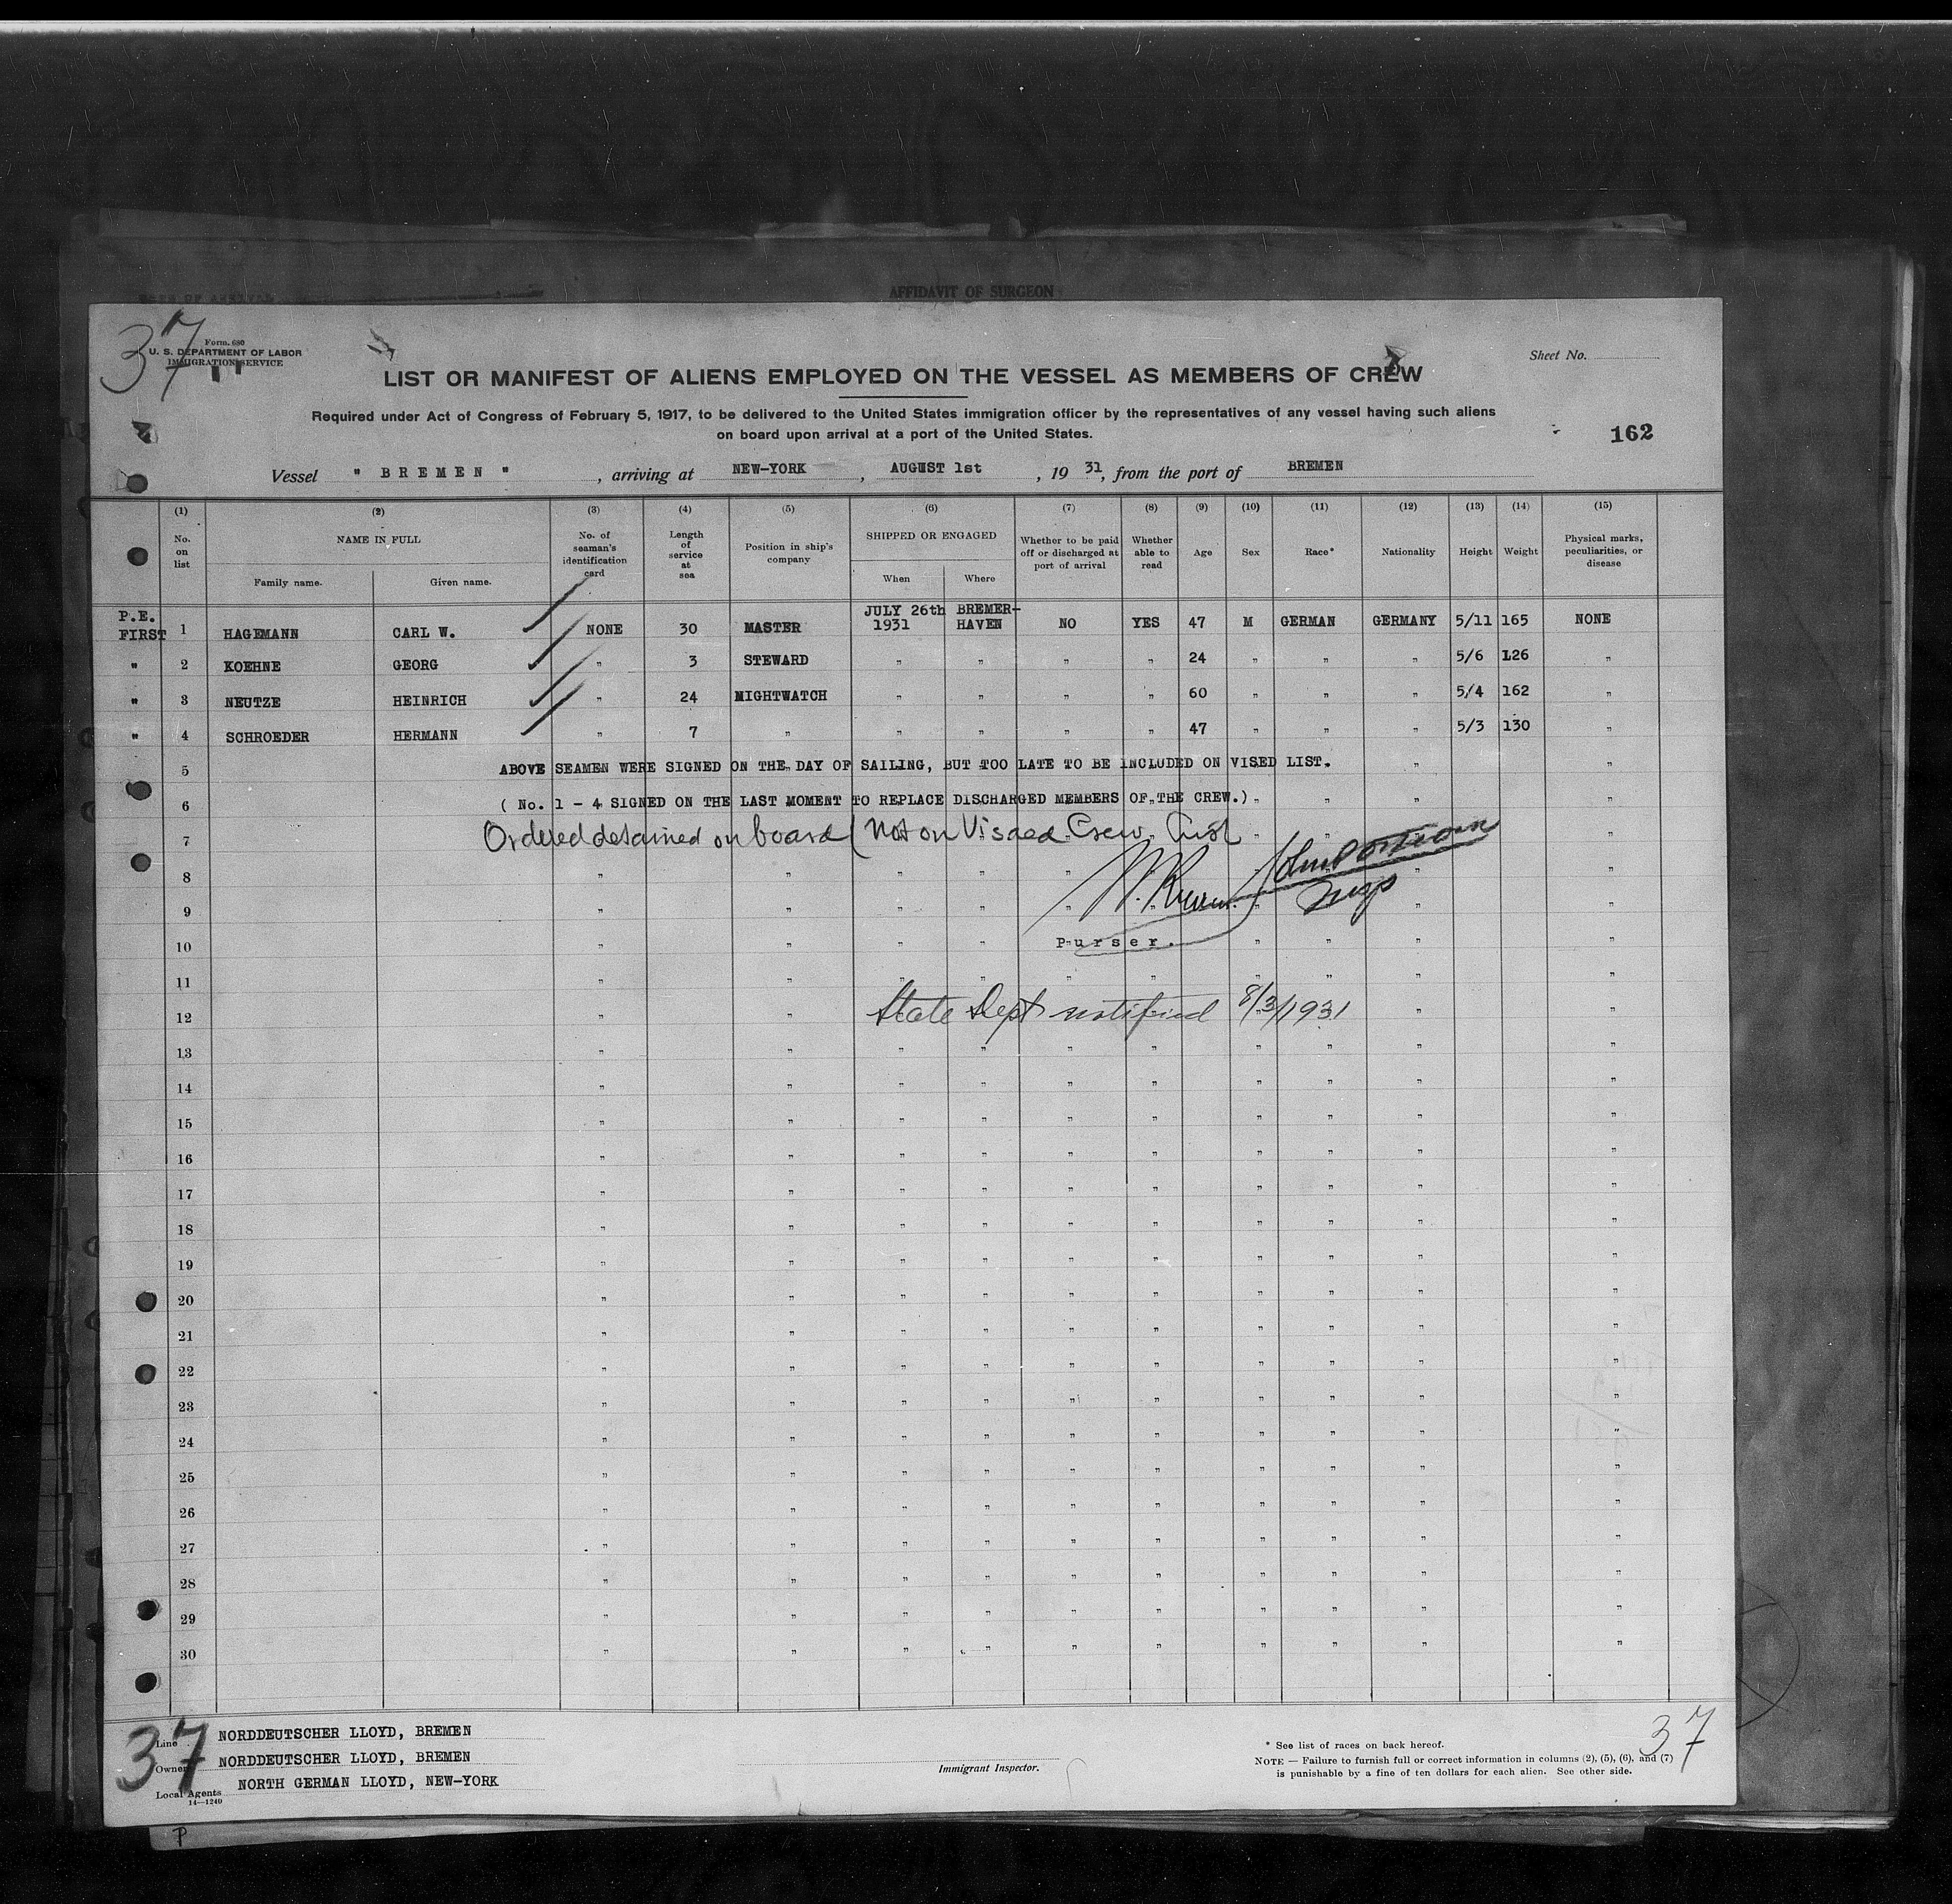 AFFIDAVIT OF SURGEON
37
Form 680
U. S. DEPARTMENT OF LABOR
IMMIGRATION SERVICE
Sheet No.
LIST OR MANIFEST OF ALIENS EMPLOYED ON THE VESSEL AS MEMBERS OF CREW
Required under Act of Congress of February 5, 1917, to be delivered to the United States immigration officer by the representatives of any vessel having such aliens
on board upon arrival at a port of the United States.
162
Vessel " BREMEN " , arriving at NEW-YORK , AUGUST 1st , 19 31, from the port of BREMEN
(1) (2) (3) (4) (5) (6) (7) (8) (9) (10) (11) (12) (13) (14) (15)
No. on list NAME IN FULL Family name. Given name. No. of seaman's identification card Length of service at sea Position in ship's company SHIPPED OR ENGAGED When Where Whether to be paid off or discharged at port of arrival Whether able to read Age Sex Race* Nationality Height Weight Physical marks, peculiarities, or disease
P.E. FIRST 1 HAGEMANN CARL W. NONE 30 MASTER JULY 26th 1931 BREMER-HAVEN NO YES 47 M GERMAN GERMANY 5/11 165 NONE
" 2 KOEHNE GEORG " 3 STEWARD " " " " 24 " " " 5/6 126 "
" 3 NEUTZE HEINRICH " 24 NIGHTWATCH " " " " 60 " " " 5/4 162 "
" 4 SCHROEDER HERMANN " 7 " " " " " 47 " " " 5/3 130 "
5 ABOVE SEAMEN WERE SIGNED ON THE DAY OF SAILING, BUT TOO LATE TO BE INCLUDED ON VISED LIST. " "
6 ( No. 1 - 4 SIGNED ON THE LAST MOMENT TO REPLACE DISCHARGED MEMBERS OF THE CREW.) " " " "
7 Ordered detained on board (Not on Visaed Crew List
8 " " " " "
9 " " " " "
10 " " " " Purser. " " " "
11 " " " " " " " " " "
12 " " State Dept notified 8/3/1931 " "
13 " " " " " " " " " "
14 " " " " " " " " " "
15 " " " " " " " " " "
16 " " " " " " " " " "
17 " " " " " " " " " "
18 " " " " " " " " " "
19 " " " " " " " " " "
20 " " " " " " " " " "
21 " " " " " " " " " "
22 " " " " " " " " " "
23 " " " " " " " " " "
24 " " " " " " " " " "
25 " " " " " " " " " "
26 " " " " " " " " " "
27 " " " " " " " " " "
28 " " " " " " " " " "
29 " " " " " " " " " "
30 " " " " " " " " " "
37
Line NORDDEUTSCHER LLOYD, BREMEN
Owner NORDDEUTSCHER LLOYD, BREMEN
Local Agents NORTH GERMAN LLOYD, NEW-YORK
14—1240
Immigrant Inspector.
* See list of races on back hereof.
NOTE — Failure to furnish full or correct information in columns (2), (5), (6), and (7)
is punishable by a fine of ten dollars for each alien. See other side.
37
P